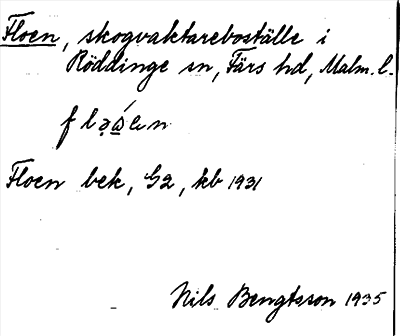 Floen, skogvaktareboställe i
Röddinge sn, Färs hd, Malm. l.
Floen bek, G2, kb 1931
Nils Bengtsson 1935